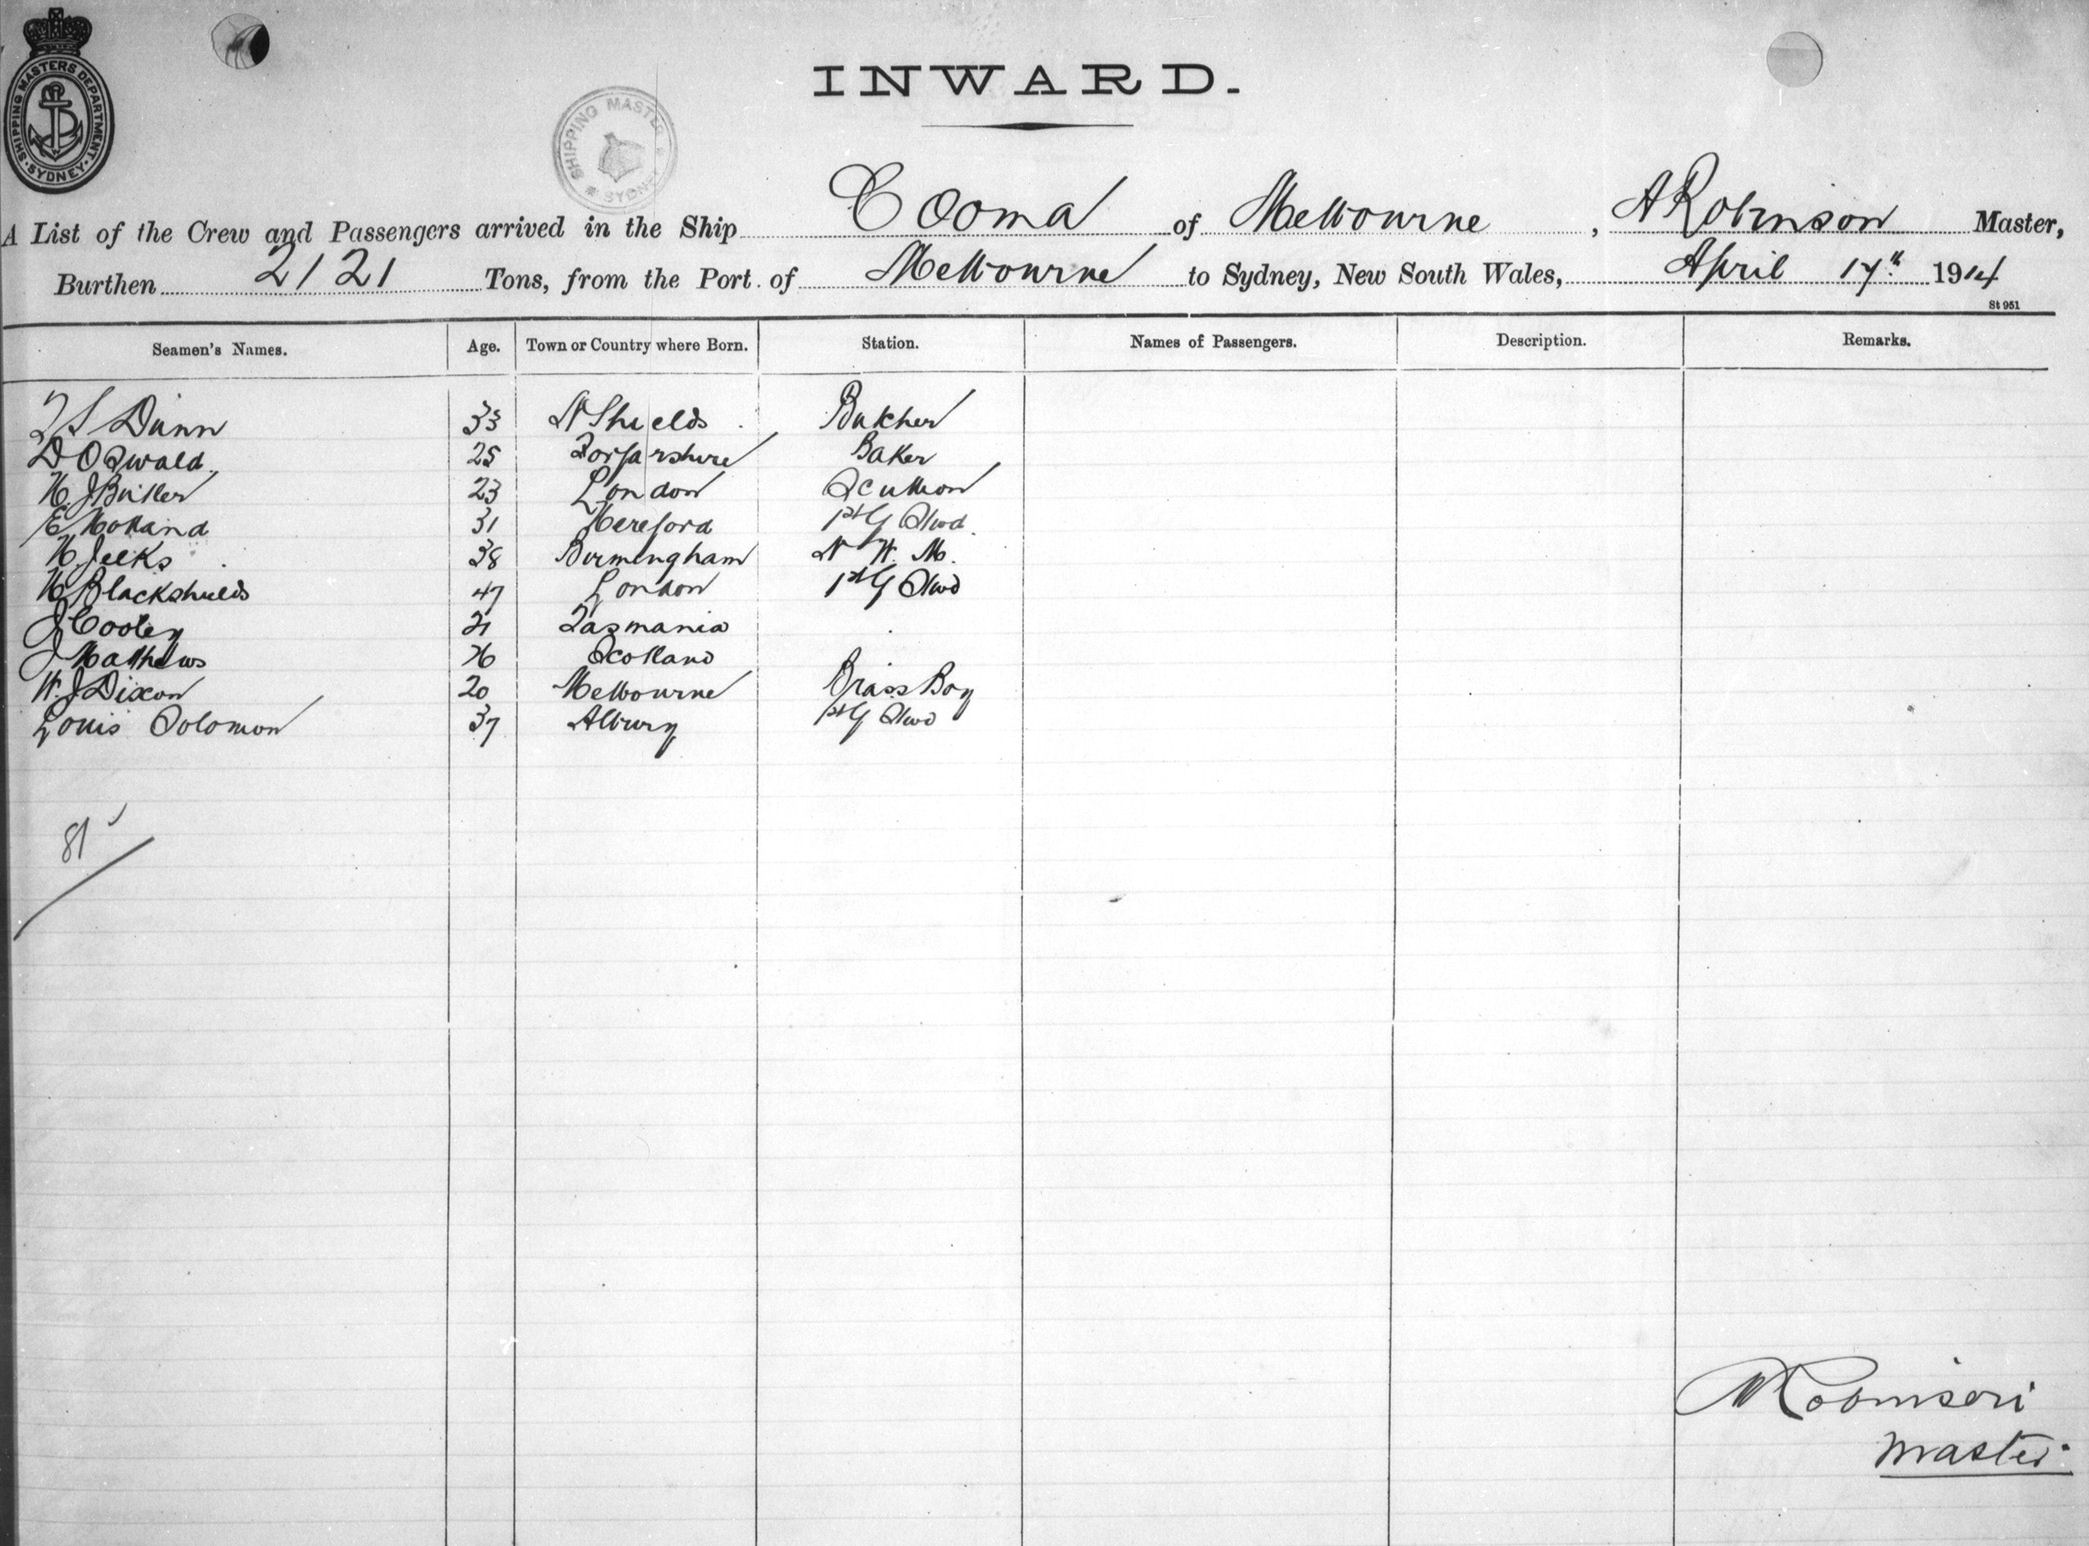 SHIPPING MASTERS DEPARTMENT
SYDNEY
SHIPPING MASTER
SYDNEY
INWARD.
A List of the Crew and Passengers arrived in the Ship Cooma of Melbourne, A Robinson Master,
Burthen 2121 Tons, from the Port of Melbourne to Sydney, New South Wales, April 17th 1914
St 951
Seamen's Names. Age. Town or Country where Born. Station. Names of Passengers. Description. Remarks.
T S Dunn 33 N Shields Butcher
D Oswald 25 Forfarshire Baker
H J Butler 23 London Scullion
E Holland 31 Hereford 1st G Stwd
H Jeeks 38 Birmingham N W M.
H Blackshields 47 London 1st G Stwd
J Cooley 21 Tasmania
J Mathews 26 Scotland
W. J Dixon 20 Melbourne Brass Boy
Louis Solomon 37 Albury 1st G Stwd
81
A Robinson
Master